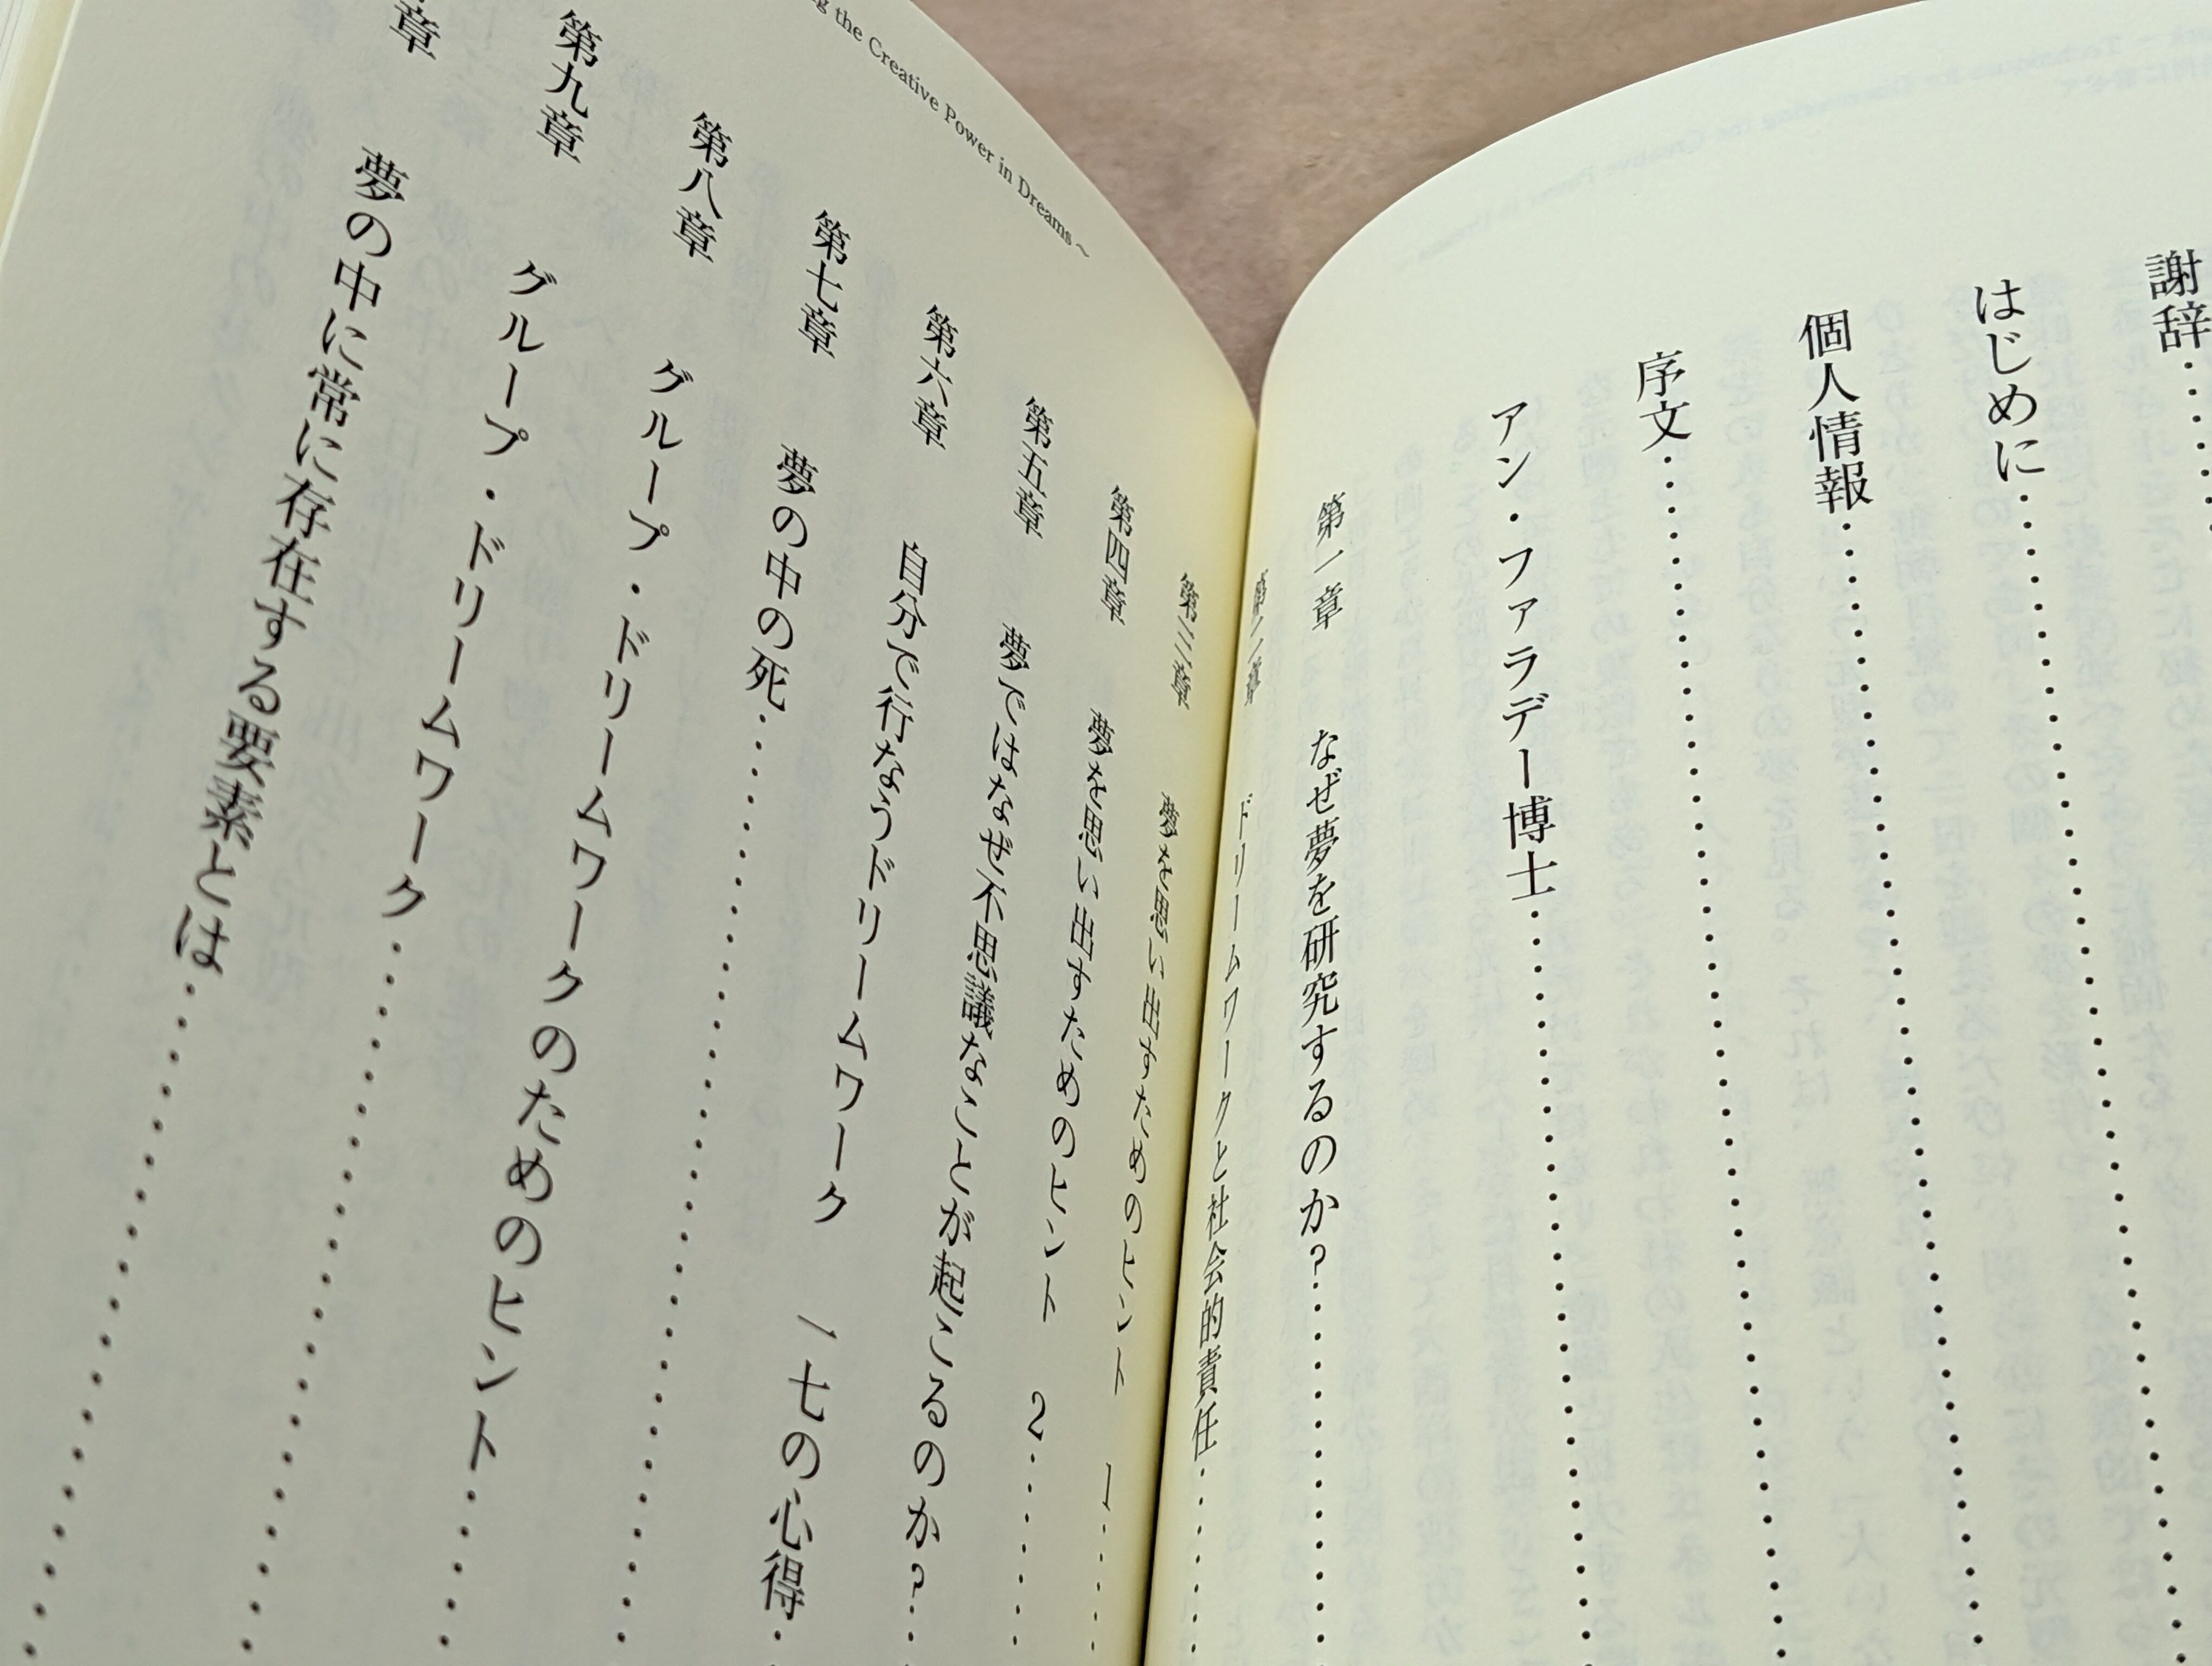 謝辞
はじめに
個人情報
序文
アン・ファラデー博士
第一章　なぜ夢を研究するのか?
第二章　ドリームワークと社会的責任
the Creative Power in Dreams ~
第三章　夢を思い出すためのヒント　1
第四章　夢を思い出すためのヒント　2
第五章　夢ではなぜ不思議なことが起こるのか?
第六章　自分で行なうドリームワーク　一七の心得
第七章　夢の中の死
第八章　グループ・ドリームワークのためのヒント
第九章　グループ・ドリームワーク
章　夢の中に常に存在する要素とは